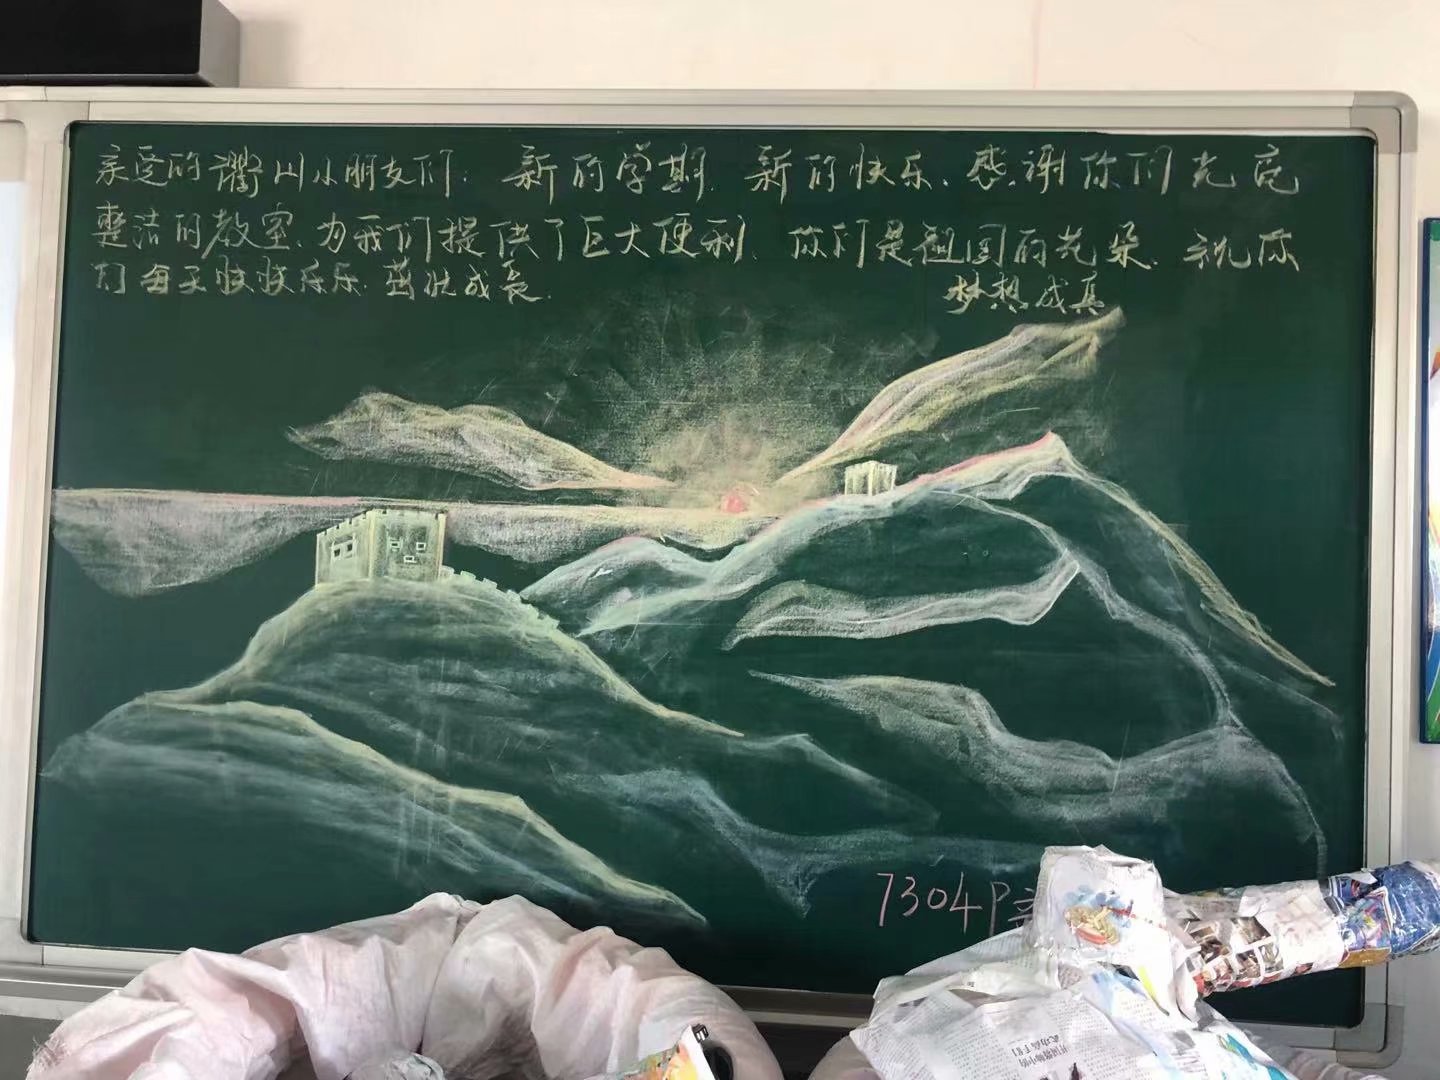 亲爱的衢山小朋友们：新的学期，新的快乐、感谢你们光亮
整洁的教室、为我们提供了巨大便利、你们是祖国的花朵、祝你
们每天快快乐乐、茁壮成长、
梦想成真
7304户